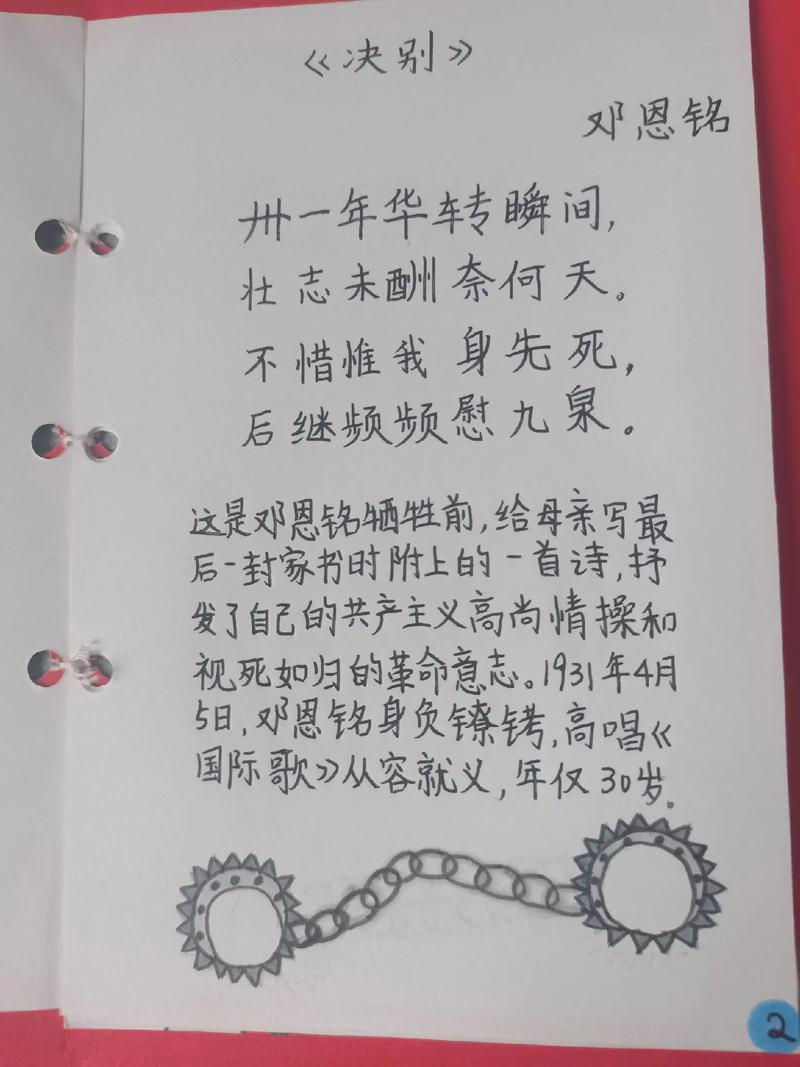 《决别》
邓恩铭
卅一年华转瞬间,
壮志未酬奈何天。
不惜惟我身先死,
后继频频慰九泉。
这是邓恩铭牺牲前,给母亲写最
后一封家书时附上的一首诗,抒
发了自己的共产主义高尚情操和
视死如归的革命意志。1931年4月
5日,邓恩铭身负镣铐,高唱《
国际歌》从容就义,年仅30岁.
2